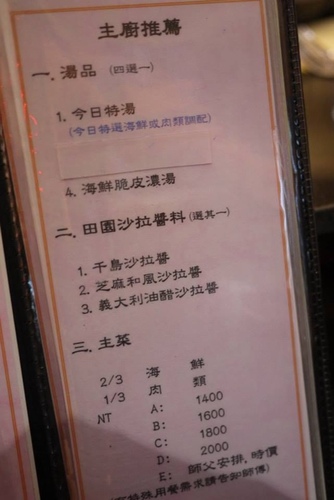 主廚推薦
一.湯品 (四選一)
1.今日特湯
(今日特選海鮮或肉類調配)
4.海鮮脆皮濃湯
二.田園沙拉醬料(選其一)
1.千島沙拉醬
2.芝麻和風沙拉醬
3.義大利油醋沙拉醬
三.主菜
2/3 海 鮮
1/3 肉 類
NT A: 1400
B: 1600
C: 1800
D: 2000
E: 師父安排.時價
特殊用餐需求請告知師傅)